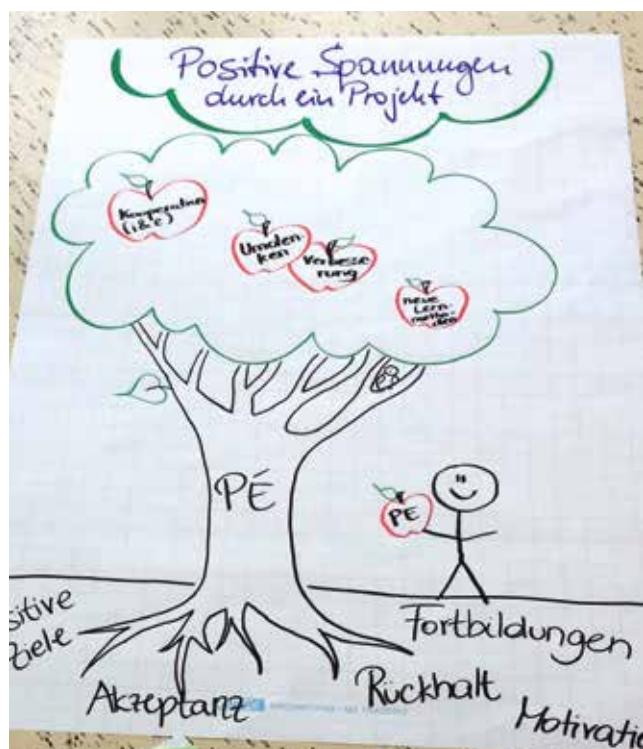 Positive Spannungen
durch ein Projekt
Kooperation
(i&e)
Umden-
ken
Verbesse
rung
neue
Lern-
metho-
den
PÉ
PE
sitive
Ziele
Fortbildungen
Akzeptanz
Rückhalt
Motivati